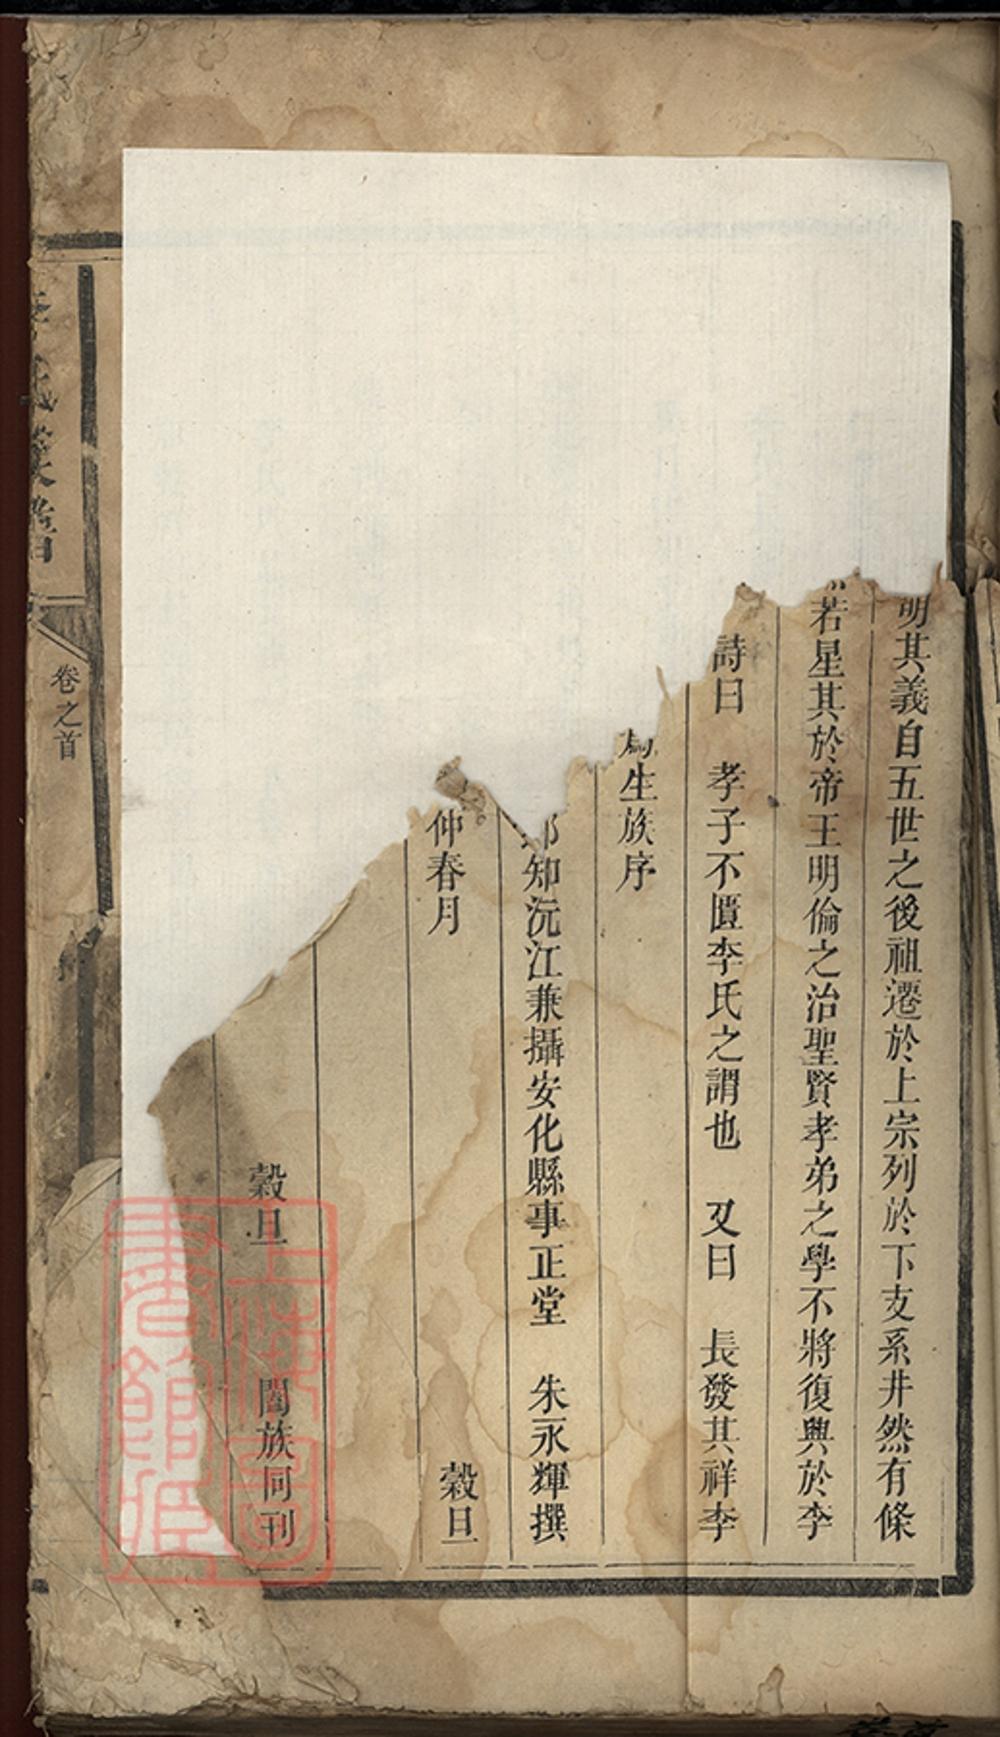 明其義自五世之後祖遷於上宗列於下支系井然有條
若星其於帝王明倫之治聖賢孝弟之學不將復興於李
詩曰　孝子不匱李氏之謂也　又曰　長發其祥李
生族序
知沅江兼攝安化縣事正堂　朱永輝撰
仲春月　穀旦
穀旦　闔族同刊
氏族譜
卷之首
上海圖書館藏